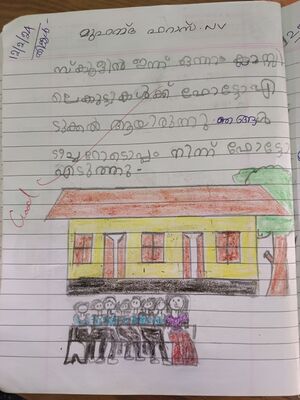 12/2/24
തിങ്കൾ
മുഹമ്മദ് ഹാറൂസ്. PV
സ്കൂളിൽ ഇന്ന് ഒന്നാം ക്ലാസ്സി
ലെകുട്ടികൾക്ക് ഫോട്ടോ എ
ടുക്കൽ ആയിരുന്നു. ഞങ്ങൾ
ടീച്ചറോടൊപ്പം നിന്ന് ഫോട്ടോ
എടുത്തു.
Good